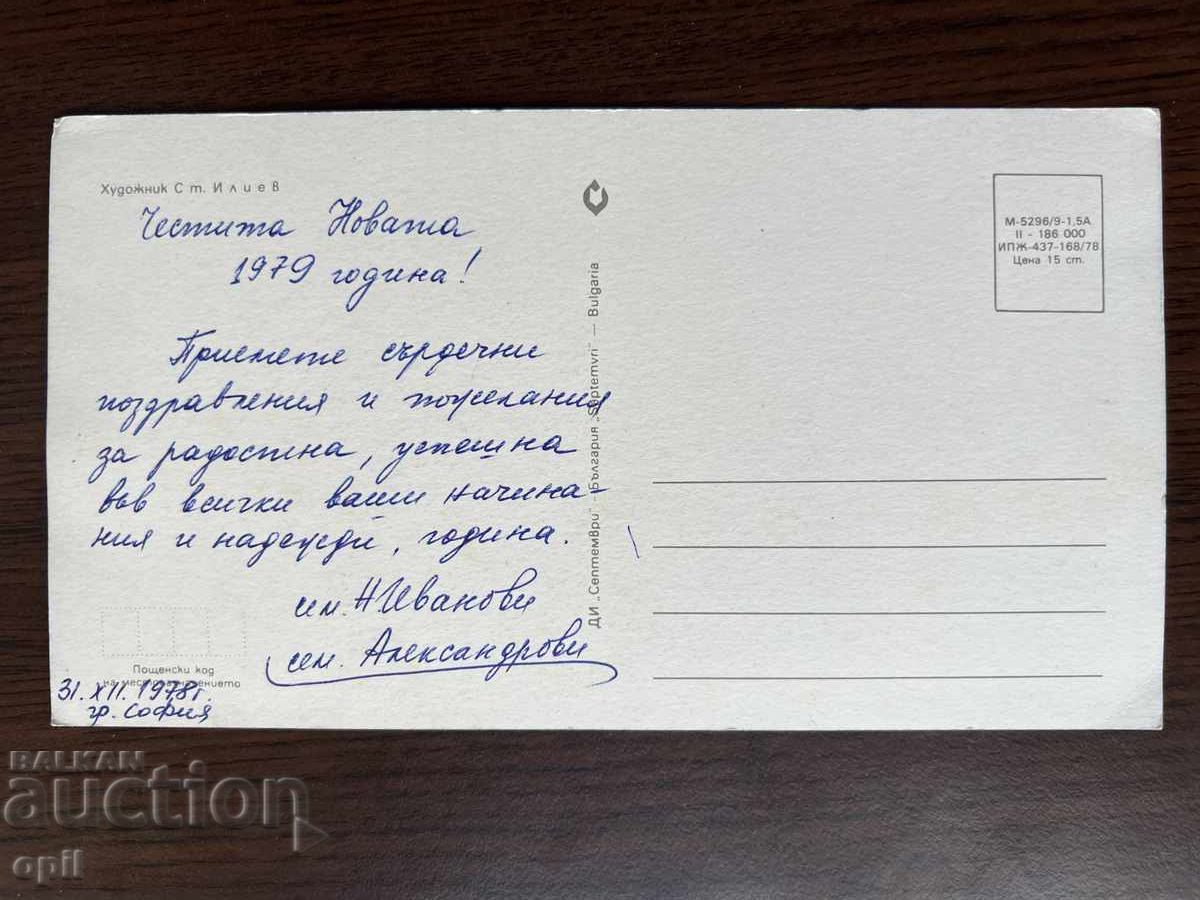 Художник Ст. Илиев
Честита Новата
1979 година!
Приемете сърдечни
поздравления и пожелания
за радостна, успешна
във всички ваши начина-
ния и надежди, година.
сем. Н. Иванови
сем. Александрови
Пощенски код
на местоназначението
31. XII. 1978 г.
гр. София
ДИ „Септември" — България „Septemvri" — Bulgaria
М-5296/9-1,5А
II - 186 000
ИПЖ-437-168/78
Цена 15 ст.
BALKAN
auction
opil